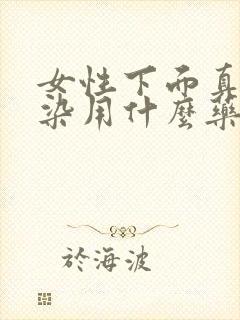 女性下而真
染用什麼藥
於海波